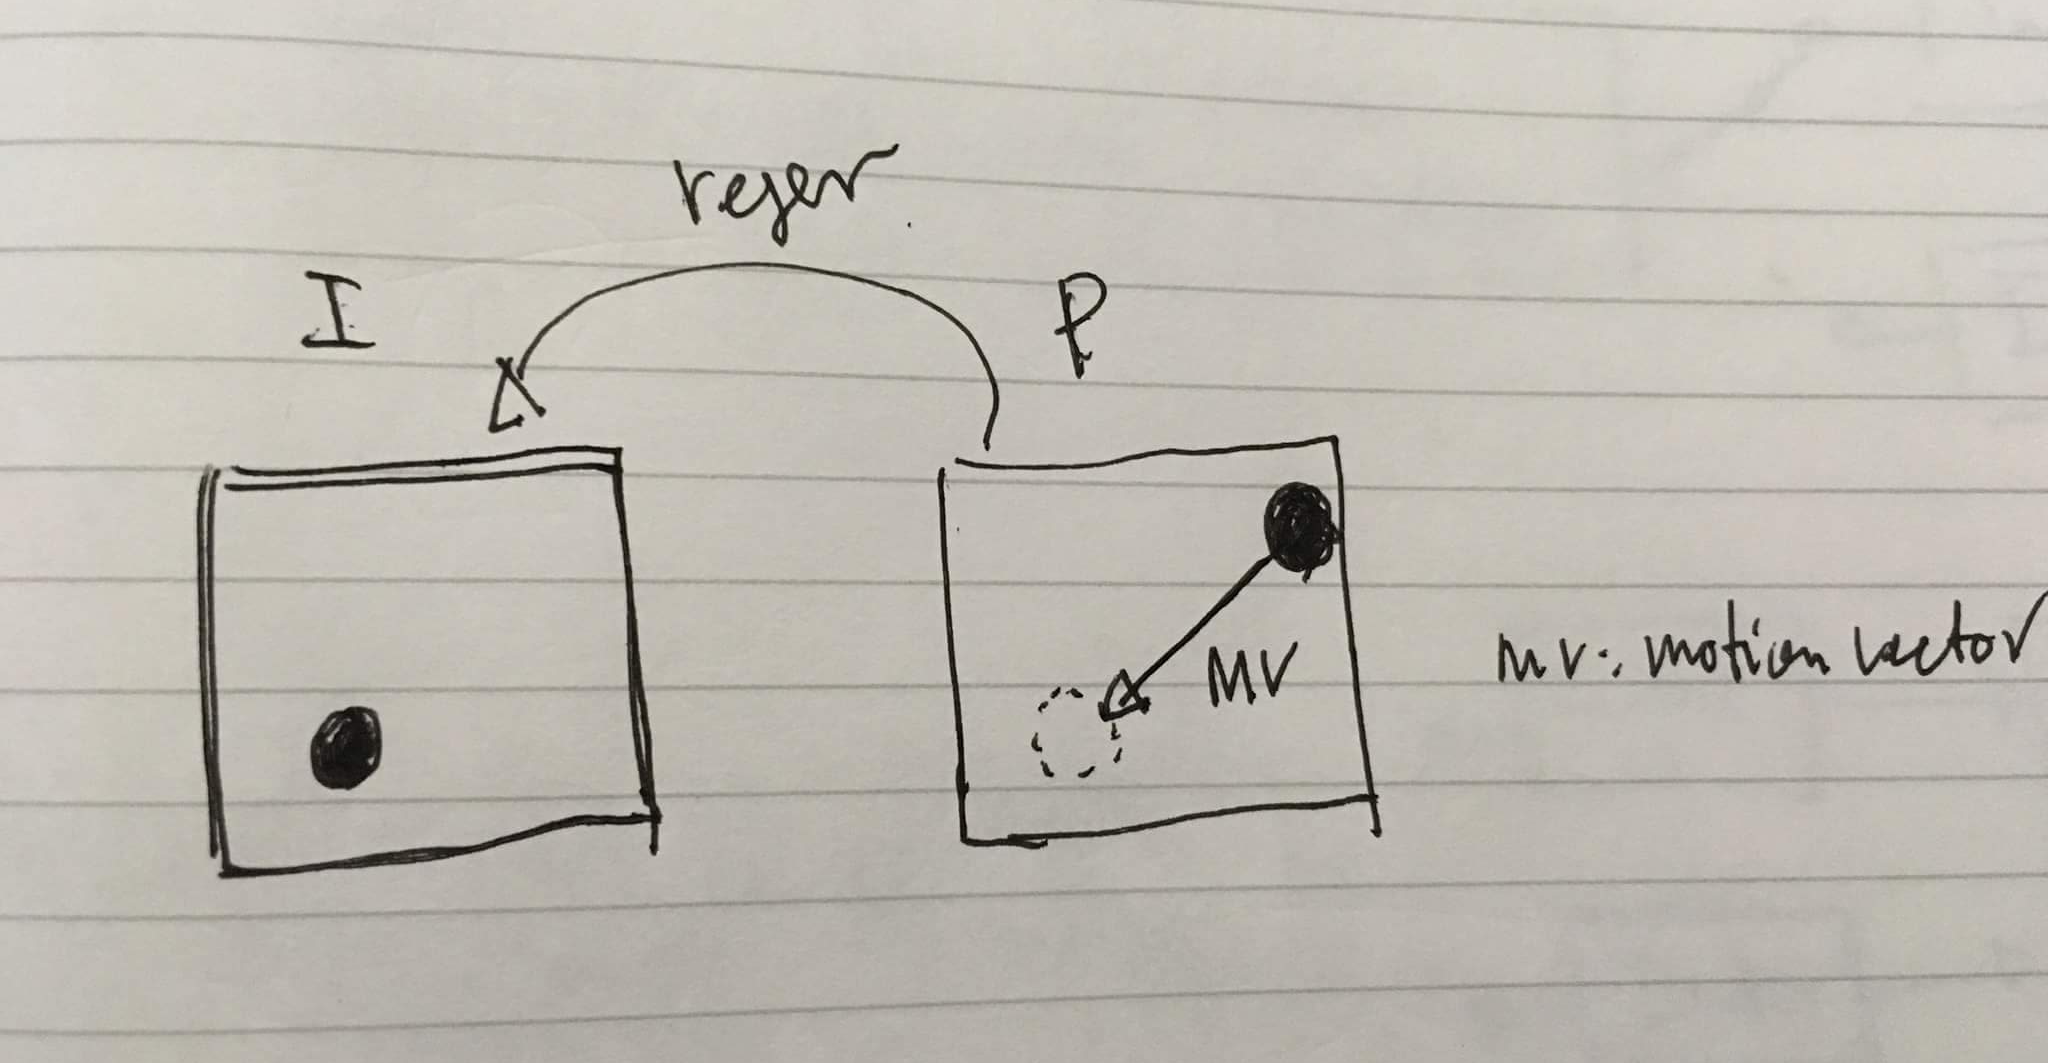 refer
I
P
MV
MV: motion vector